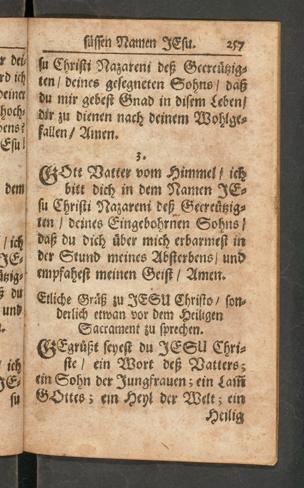 süssen Namen JEsu. 257
su Christi Nazareni deß Gecreützig-
ten/ deines gesegneten Sohns/ daß
du mir gebest Gnad in disem Leben/
dir zu dienen nach deinem Wohlge-
fallen/ Amen.
3.
GOtt Vatter vom Himmel/ ich
bitt dich in dem Namen JE-
su Christi Nazareni deß Gecreützig-
ten/ deines Eingebohrnen Sohns/
daß du dich über mich erbarmest in
der Stund meines Absterbens/ und
empfahest meinen Geist/ Amen.
Etliche Grüß zu JESU Christo/ son-
derlich etwan vor dem Heiligen
Sacrament zu sprechen.
GEgrüßt seyest du JESU Chri-
ste/ ein Wort deß Vatters;
ein Sohn der Jungfrauen; ein Lam̃
GOttes; ein Heyl der Welt; ein
Heilig